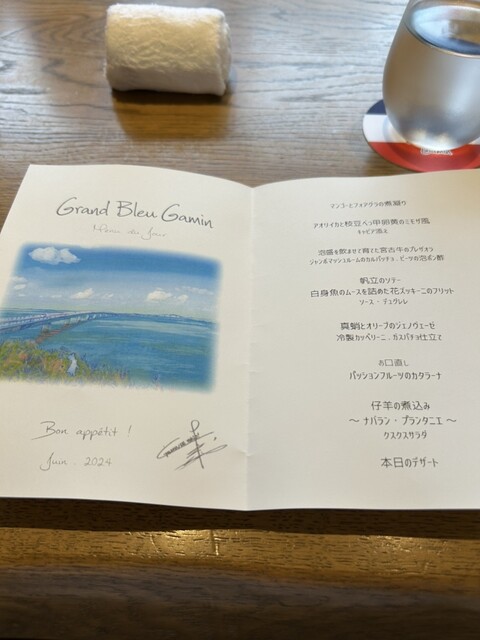 Grand Bleu Gamin
Menu du Jour
Bon appétit !
Juin . 2024
マンゴーとフォアグラの煮凝り
アオリイカと枝豆べっ甲卵黄のミモザ風
キャビア添え
泡盛を飲ませて育てた宮古牛のブレザオラ
ジャンボマッシュルームのカルパッチョ、ビーツの泡ポン酢
帆立のソテー
白身魚のムースを詰めた花ズッキーニのフリット
ソース・デュグレレ
真蛸とオリーブのジェノヴェーゼ
冷製カッペリーニ、ガスパチョ仕立て
お口直し
パッションフルーツのカタラーナ
仔羊の煮込み
～ ナバラン・プランタニエ ～
クスクスサラダ
本日のデザート